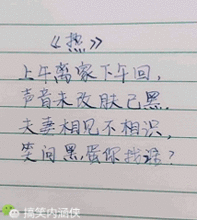 《热》
上午离家下午回，
声音未改肤已黑.
夫妻相见不相识，
笑问黑蛋你找谁？
搞笑内涵侠